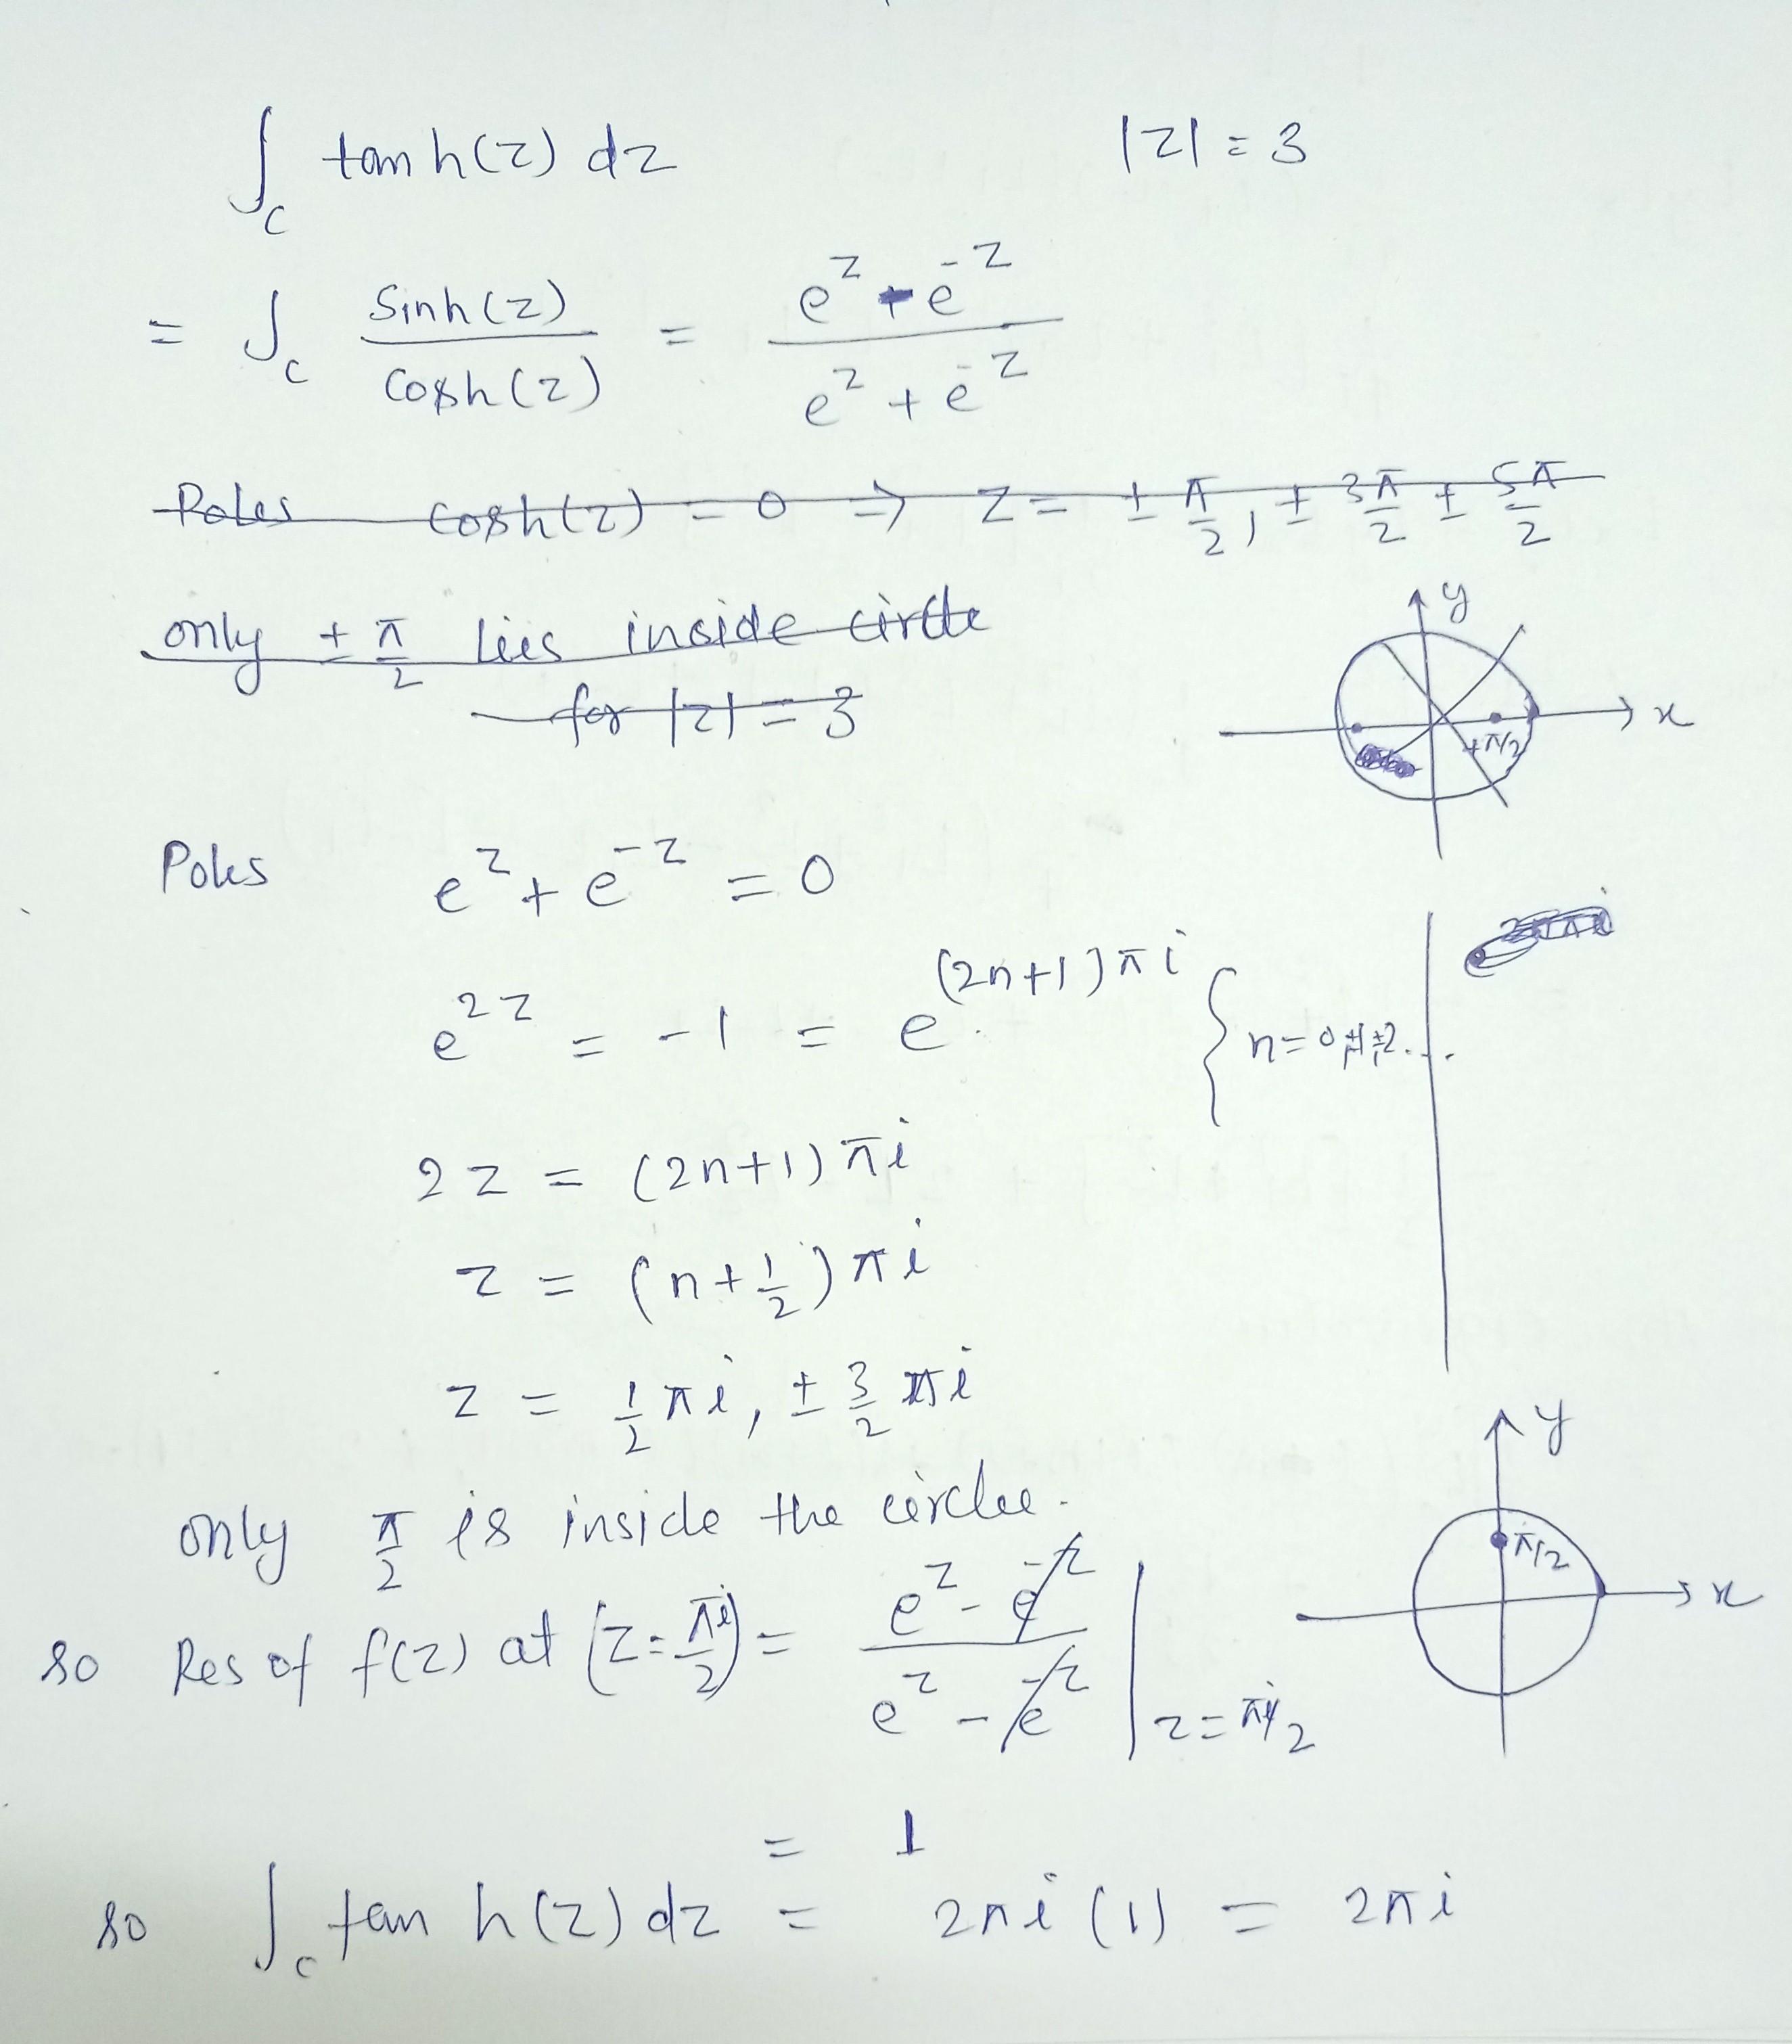 ∫_C tan h(z) dz    |z| = 3
= ∫_C Sinh(z)/Cosh(z) = (e^z - e^-z)/(e^z + e^-z)
Poles cosh(z) = 0 ⇒ z = ± π/2, ± 3π/2 ± 5π/2
only ± π/2 lies inside circle
for |z| = 3
y
x
+π/2
Poles e^z + e^-z = 0
e^2z = -1 = e^(2n+1)πi { n = 0, ±1, ±2...
2z = (2n+1)πi
z = (n + 1/2)πi
z = 1/2 πi, ± 3/2 πi
only π/2 is inside the circle.
y
π/2
x
so Res of f(z) at (z = πi/2) = (e^z - e^-z)/(e^z - e^-z) | z = πi/2
= 1
so ∫_C tan h(z) dz = 2πi (1) = 2πi